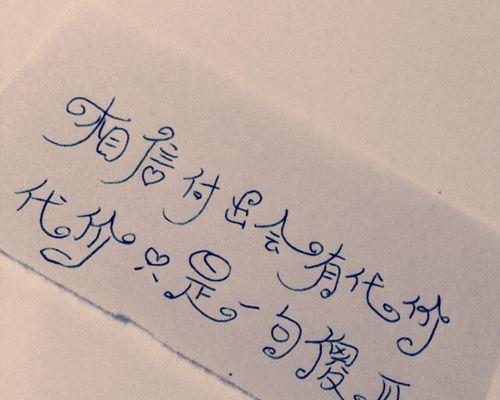 相信付出会有代价
代价只是一句傻